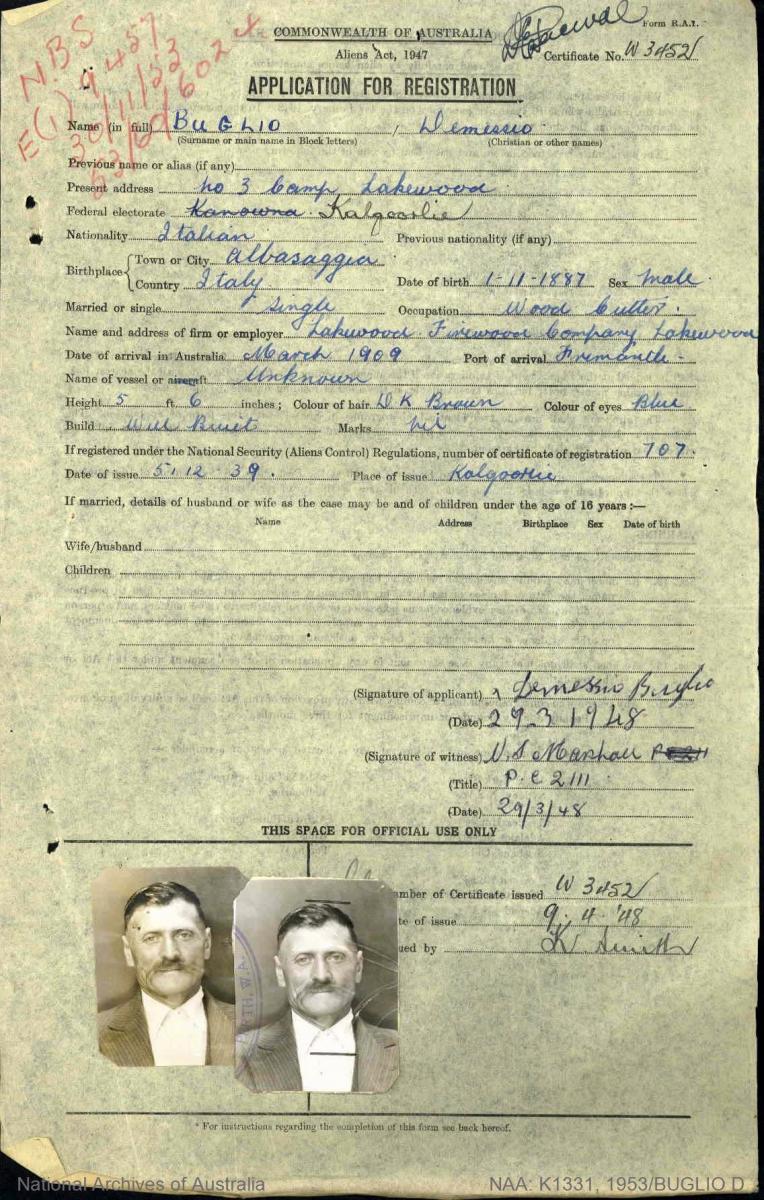 COMMONWEALTH OF AUSTRALIA
Form R.A.1.
Aliens Act, 1947
Certificate No. W 3452
APPLICATION FOR REGISTRATION
N.B.S
E(1) 9457
30/11/53
Name (in full) BUGLIO / Demessio
(Surname or main name in Block letters) (Christian or other names)
Previous name or alias (if any)
Present address no 3 Camp, Lakewood
Federal electorate Kanowna Kalgoorlie
Nationality Italian Previous nationality (if any)
Birthplace { Town or City Albasaggia
Country Italy Date of birth 1-11-1887 Sex male
Married or single Single Occupation Wood Cutter.
Name and address of firm or employer Lakewood Firewood Company, Lakewood
Date of arrival in Australia March 1909 Port of arrival Fremantle -
Name of vessel or aircraft Unknown
Height 5 ft. 6 inches; Colour of hair DK Brown Colour of eyes Blue
Build Well Built Marks nil
If registered under the National Security (Aliens Control) Regulations, number of certificate of registration 707.
Date of issue 5.12.39. Place of issue Kalgoorlie
If married, details of husband or wife as the case may be and of children under the age of 16 years :—
Name Address Birthplace Sex Date of birth
Wife/husband
Children
(Signature of applicant) x Demessio Buglio
(Date) 29.3.1948
(Signature of witness) V. S. Marshall
(Title) P.C 2111
(Date) 29/3/48
THIS SPACE FOR OFFICIAL USE ONLY
mber of Certificate issued W 3452
te of issue 9.4.'48
ued by K Smith
RTH, W.A.
* For instructions regarding the completion of this form see back hereof.
National Archives of Australia
NAA: K1331, 1953/BUGLIO D